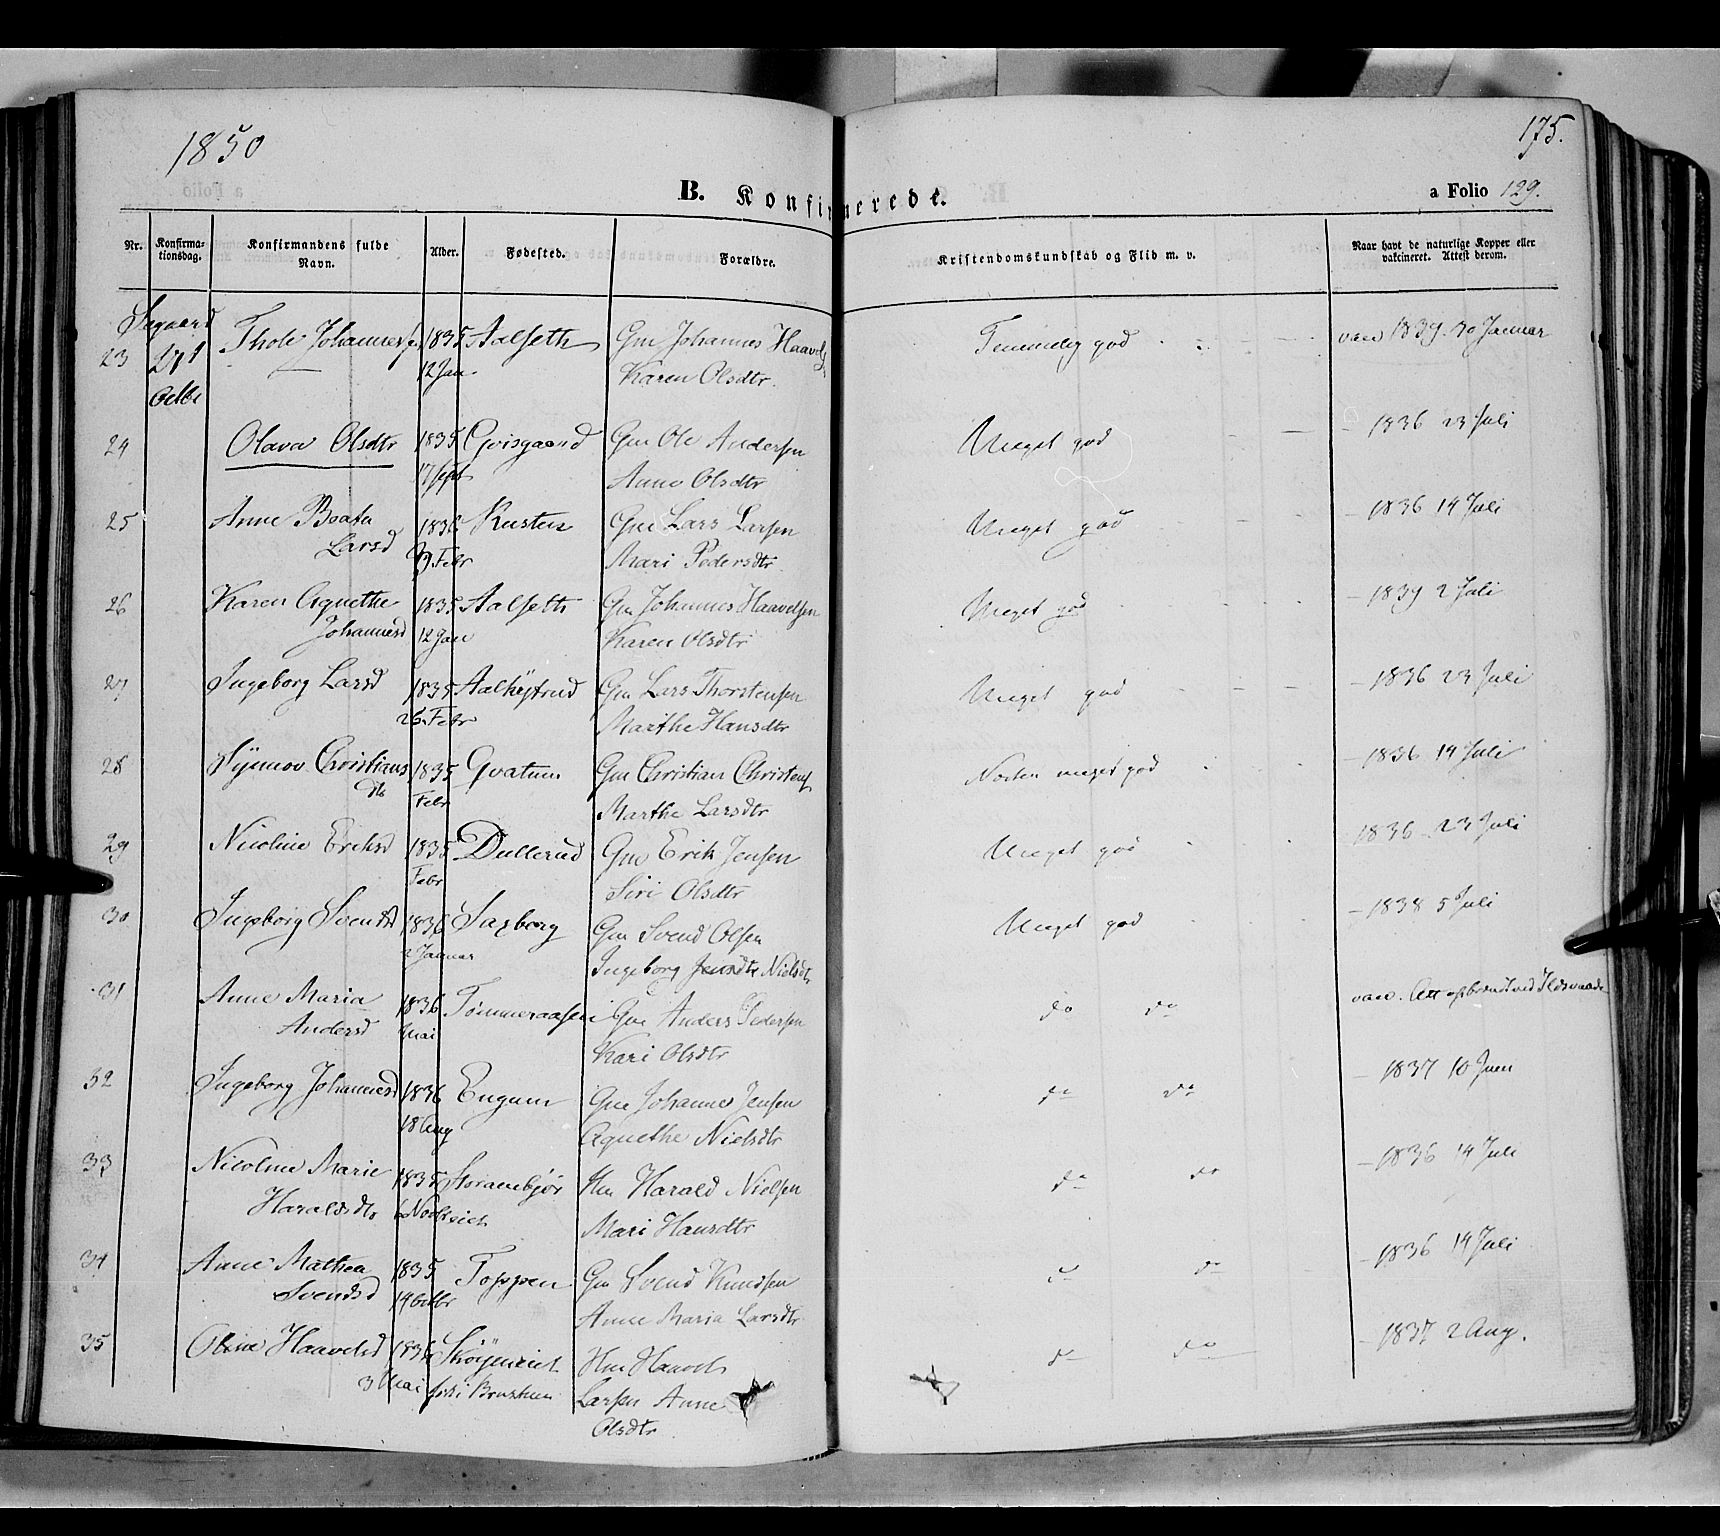 1850
175.
B. Konfirmerede.
a Folio 129.
Nr.
Konfirma-
tionsdag.
Konfirmandens fulde
Navn.
Alder.
Fødested.
Forældre.
Kristendomskundskab og Flid m. v.
Naar havt de naturlige Kopper eller
vaktineret. Attest derom.
23 Thole 1835 Aalseth Gm Johannes Haavels
12 Jan. Karen Olsdtr.
god vacc 1839. 30 Januar
Octbr
24 Olava Olsdtr 1835 Gvisgaard Gm Ole Andersen Meget god - 1836 23 Juli
17 Sept Anne Olsdtr
25 Anne Beata 1836 Gm Lars Larsen Meget god - 1836 14 Juli
Larsd Febr Mari Pedersdtr
26 Karen Agnethe 1835 Aalseth Gm Johannes Haavelsen Meget god - 1839 2 Juli
Johannesd 12 Jan Karen Olsdtr
27 Ingeborg Larsd 1835 Gm Lars Thorstensen Meget god - 1836 23 Juli
26 Febr Marthe Hansdtr
28 Christians 1835 Gvatum Gm Christian Christens meget god - 1836 14 Juli
dtr Febr Marthe Larsdtr
29 Nicoline Eriksd 1835 Dullerud Gm Erik Jensen Meget god 1836 23 Juli
Febr Siri Olsdtr
30 Ingeborg Svensd 1836 Saxborg Gm Svend Olsen Meget god - 1838 5 Juli
2 Januar Ingeborg Nielsdtr
31 Anne Maria 1836 Tømmeraasen Gm Anders Pedersen do do vacc. Att opbrændt ved Ildsvaade
Andersd Mai Kari Olsdtr
32 Ingeborg Johannesd 1836 Engum Gm Johannes Jensen do do - 1837 10 Juni
18 Aug Agnethe Nielsdtr
33 Nicoline Marie 1835 Hm Harald Nielsen do do - 1836 14 Juli
Haraldsdtr 6 Nov Mari Hansdtr
34 Anne Mathea 1835 Toppen Gm Svend Knudsen do do - 1836 14 Juli
Svendsd 14 Octbr Anne Maria Larsdtr
35 Haavelsd 1836 Skøyeneiet Hm Haavel do do - 1837 2 Aug.
3 Mai Larsen Anne
Olsdtr